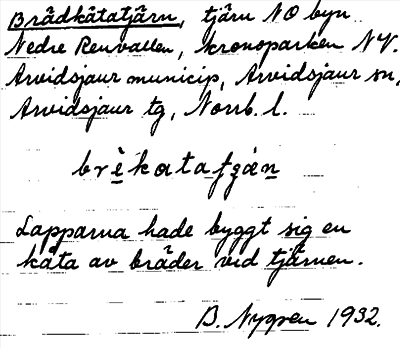 Brädkåtatjärn, tjärn NO byn
Nedre Renvallen, kronoparken NV.
Arvidsjaur municip, Arvidsjaur sn,
Arvidsjaur tg, Norrb. l.
Lapparna hade byggt sig en
kåta av bräder vid tjärnen.
B. Nygren 1932.